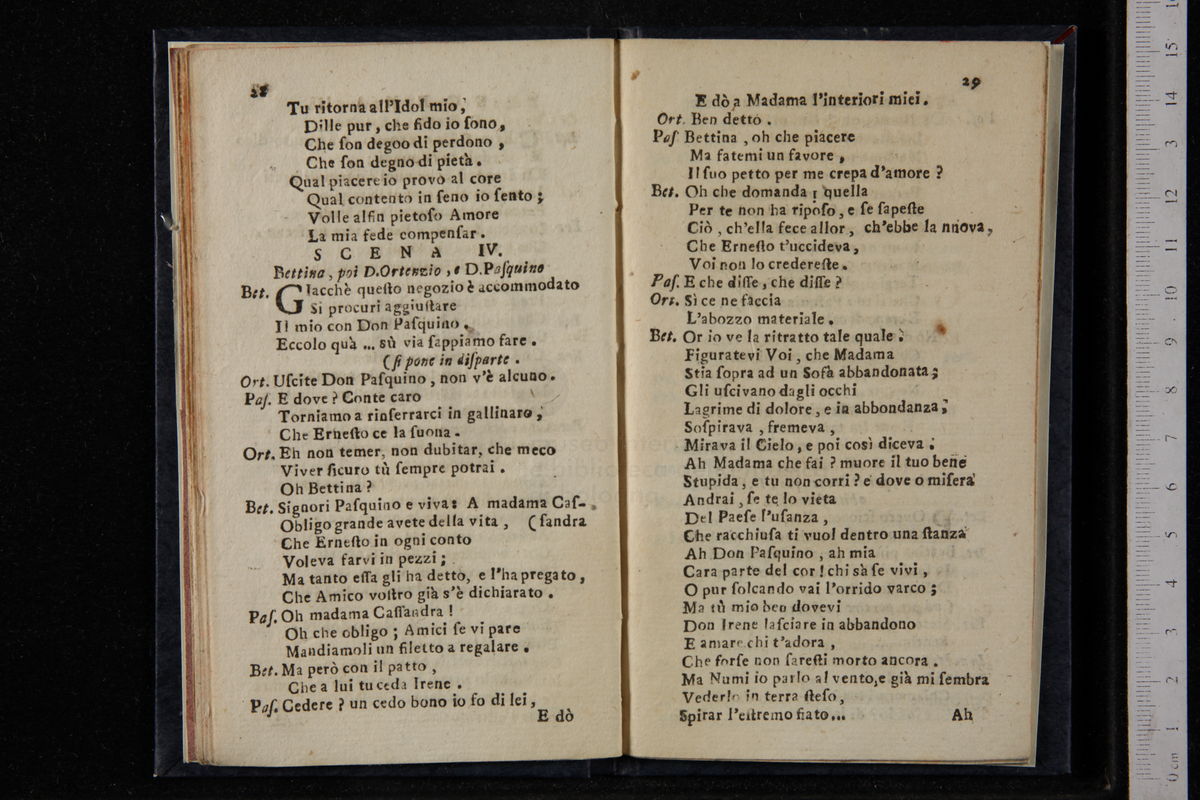 28
Tu ritorna all'Idol mio,
Dille pur, che fido io ſono,
Che ſon degoo di perdono,
Che ſon degno di pietà.
Qual piacere io provo al core
Qual contento in ſeno io ſento;
Volle alfin pietoſo Amore
La mia fede compenſar.
SCENA IV.
Bettina, poi D.Ortenzio, e D.Paſquino
Bet. GIacchè queſto negozio è accommodato
Si procuri aggiuſtare
Il mio con Don Paſquino.
Eccolo quà ... sù via ſappiamo fare.
(ſi pone in diſparte.
Ort. Uſcite Don Paſquino, non v'è alcuno.
Paſ. E dove? Conte caro
Torniamo a rinferrarci in gallinaro,
Che Erneſto ce la ſuona.
Ort. Eh non temer, non dubitar, che meco
Viver ſicuro tù ſempre potrai.
Oh Bettina?
Bet. Signori Paſquino e viva: A madama Caſ-
Obligo grande avete della vita, (ſandra
Che Erneſto in ogni conto
Voleva farvi in pezzi;
Ma tanto eſſa gli ha detto, e l'ha pregato,
Che Amico voſtro già s'è dichiarato.
Paſ. Oh madama Caſſandra!
Oh che obligo; Amici ſe vi pare
Mandiamoli un filetto a regalare.
Bet. Ma però con il patto,
Che a lui tu ceda Irene.
Paſ. Cedere? un cedo bono io fo di lei,
E dò
29
E dò a Madama l'interiori miei.
Ort. Ben detto.
Paſ Bettina, oh che piacere
Ma fatemi un favore,
Il ſuo petto per me crepa d'amore?
Bet. Oh che domanda! quella
Per te non ha ripoſo, e ſe ſapeſte
Ciò, ch'ella fece allor, ch'ebbe la nuova,
Che Erneſto t'uccideva,
Voi non lo credereſte.
Paſ. E che diſſe, che diſſe?
Ort. Sì ce ne faccia
L'abozzo materiale.
Bet. Or io ve la ritratto tale quale.
Figuratevi Voi, che Madama
Stia ſopra ad un Sofà abbandonata;
Gli uſcivano dagli occhi
Lagrime di dolore, e in abbondanza;
Soſpirava, fremeva,
Mirava il Cielo, e poi così diceva.
Ah Madama che fai? muore il tuo bene
Stupida, e tu non corri? e dove o miſera
Andrai, ſe te lo vieta
Del Paeſe l'uſanza,
Che racchiuſa ti vuol dentro una ſtanza
Ah Don Paſquino, ah mia
Cara parte del cor! chi sà ſe vivi,
O pur ſolcando vai l'orrido varco;
Ma tù mio ben dovevi
Don Irene laſciare in abbandono
E amare chi t'adora,
Che forſe non ſareſti morto ancora.
Ma Numi io parlo al vento, e già mi ſembra
Vederlo in terra ſteſo,
Spirar l'eſtremo fiato...
Ah